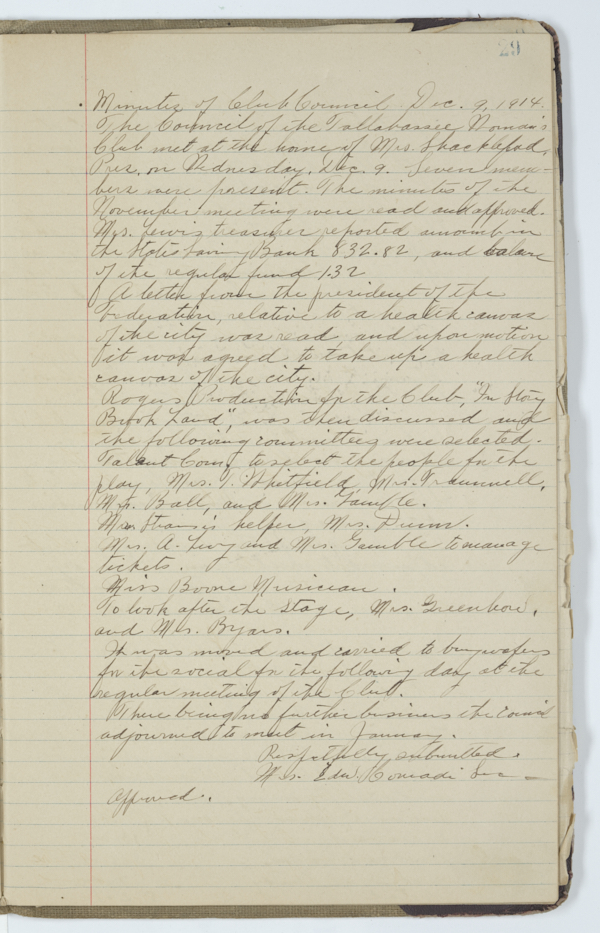 29
Minutes of Club Council Dec. 9, 1914.
The Council of the Tallahassee Woman's
Club met at the home of Mrs. Shackleford,
Pres. on Wednesday, Dec. 9. Seven mem-
bers were present. The minutes of the
November meeting were read and approved.
Mrs. Lewis treasurer reported amount in
the States Saving Bank 832.82, and balance
of the regular fund 1.32
A letter from the president of the
Federation, relative to a health canvas
of the city was read, and upon motion
it was agreed to take up a health
canvas of the city.
Rogers Production for the Club, "In Story
Book Land", was then discussed and
the following committees were selected.
Talent Com. to select the people for the
play, Mrs. T. Whitfield, Mrs. Trammell,
Mrs. Ball, and Mrs. Gamble.
Mrs. helper, Mrs. Dunn.
Mrs. A. Levy and Mrs. Gamble to manage
tickets.
Miss Boone Musician.
To look after the stage, Mrs. Greenhow,
and Mrs. Byars.
It was moved and carried to buy wafers
for the social for the following day at the
regular meeting of the Club.
There being no further business the council
adjourned to meet in January.
Respectfully submitted.
Mrs. Edw. Conradi Sec -
Approved.